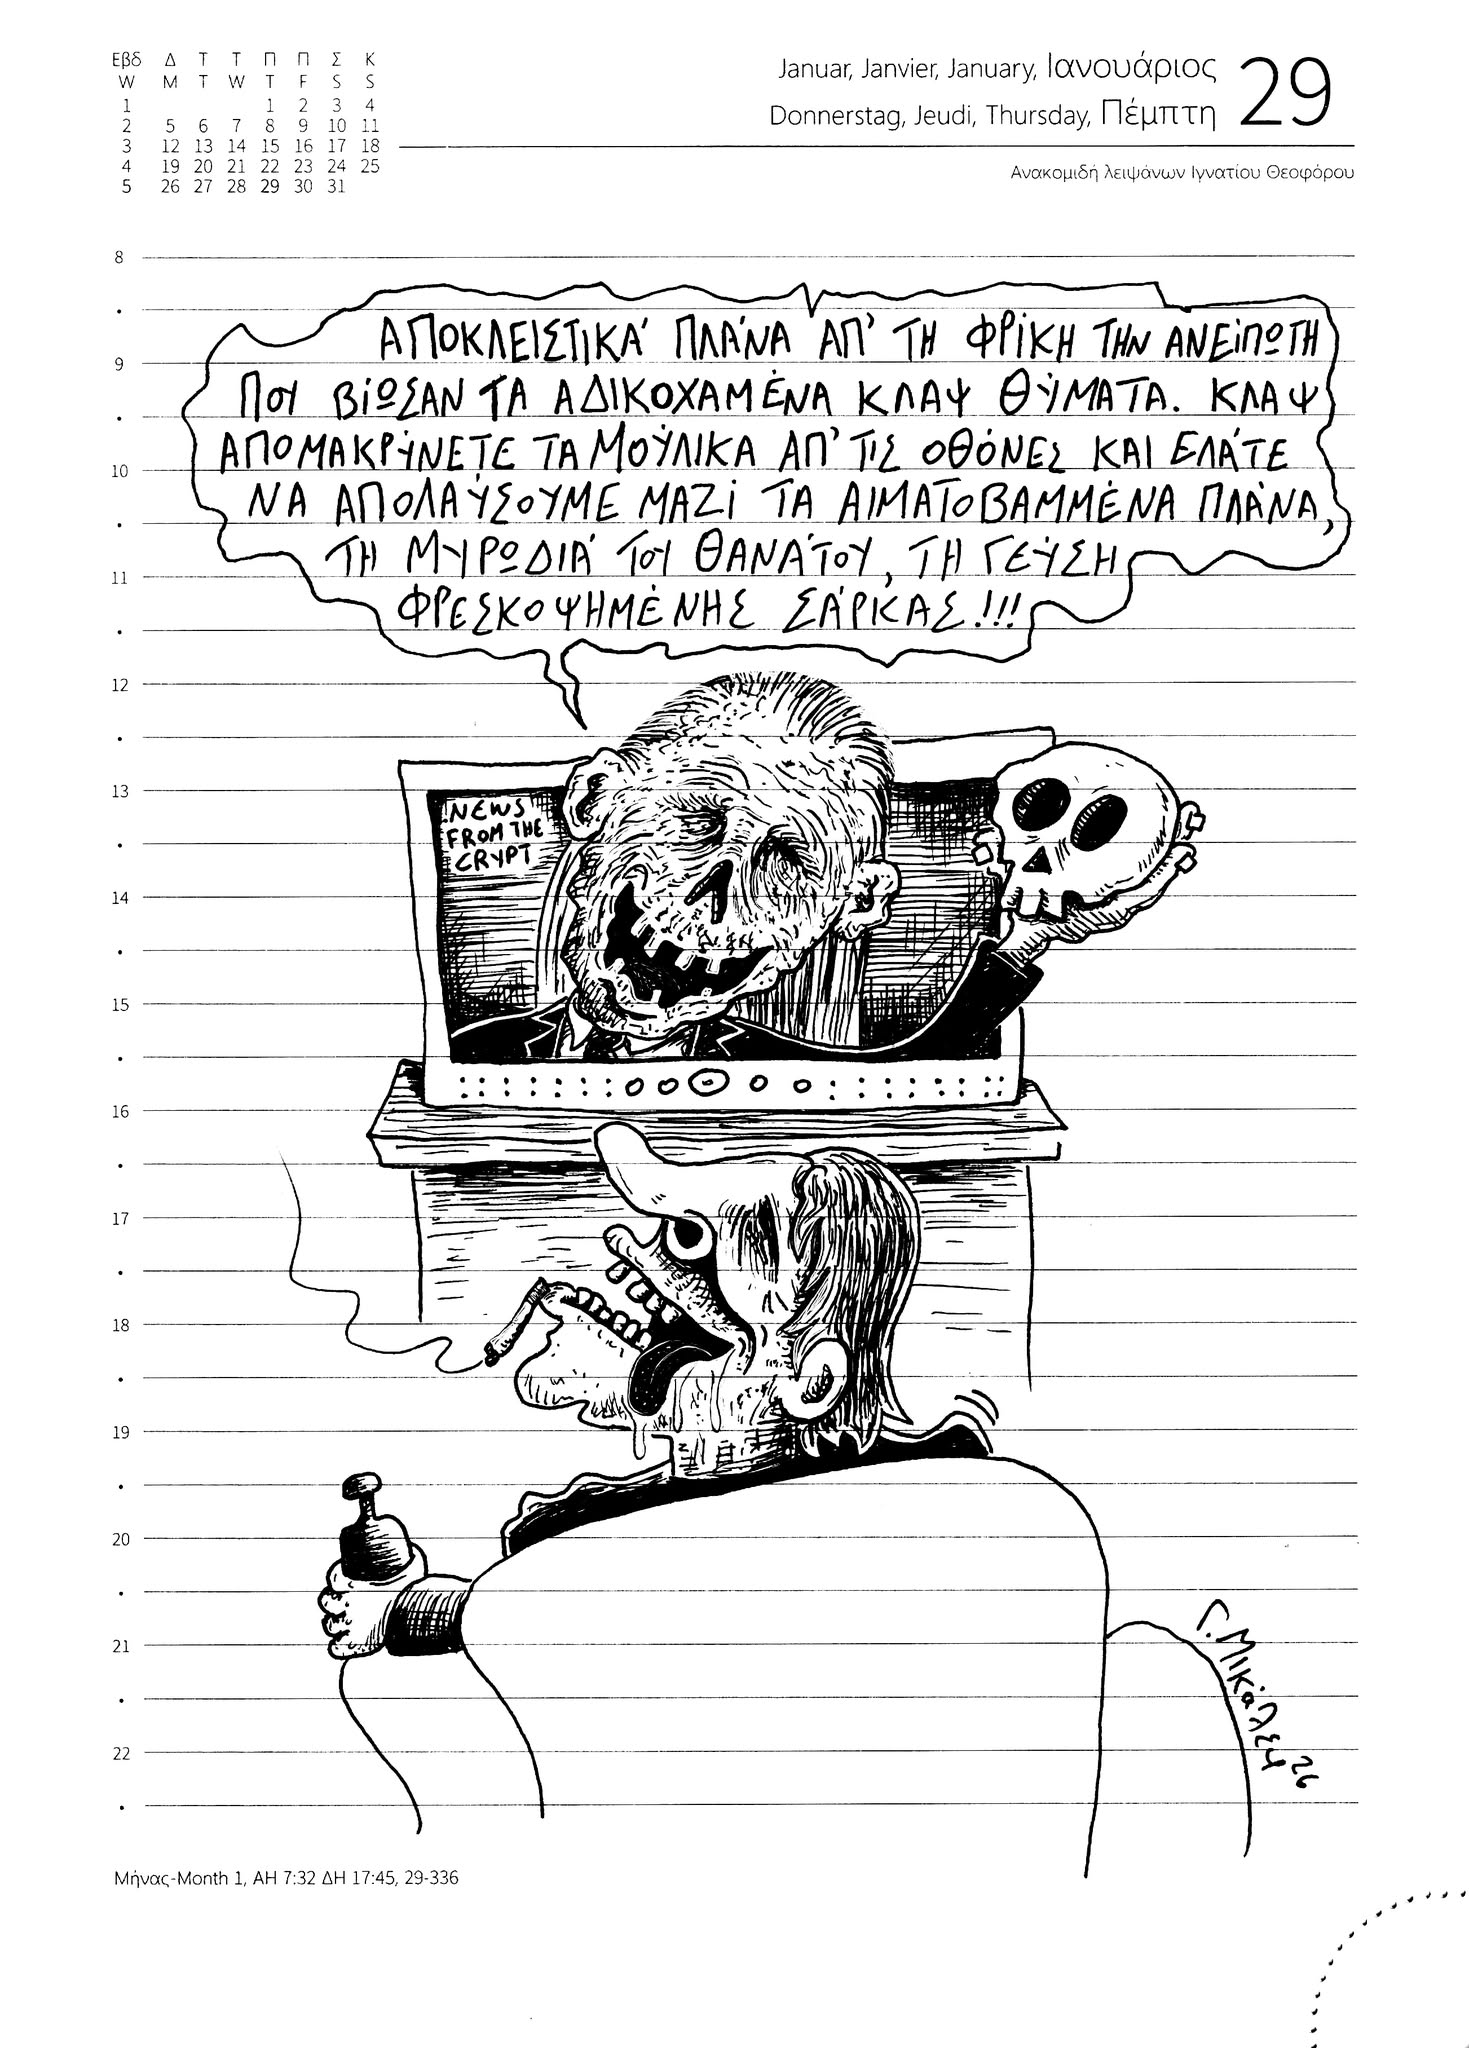 Εβδ Δ Τ Τ Π Π Σ Κ
W M T W T F S S
1 1 2 3 4
2 5 6 7 8 9 10 11
3 12 13 14 15 16 17 18
4 19 20 21 22 23 24 25
5 26 27 28 29 30 31
Januar, Janvier, January, Ιανουάριος
Donnerstag, Jeudi, Thursday, Πέμπτη
29
Ανακομιδή λειψάνων Ιγνατίου Θεοφόρου
8
ΑΠΟΚΛΕΙΣΤΙΚΆ ΠΛΆΝΑ ΑΠ' ΤΗ ΦΡΊΚΗ ΤΗΝ ΑΝΕΊΠΩΤΗ
9
ΠΟΥ ΒΊΩΣΑΝ ΤΑ ΑΔΙΚΟΧΑΜΈΝΑ ΚΛΑΨ ΘΎΜΑΤΑ. ΚΛΑΨ
ΑΠΟΜΑΚΡΎΝΕΤΕ ΤΑ ΜΟΎΛΙΚΑ ΑΠ' ΤΙΣ ΟΘΌΝΕΣ ΚΑΙ ΕΛΆΤΕ
10
ΝΑ ΑΠΟΛΑΎΣΟΥΜΕ ΜΑΖΊ ΤΑ ΑΙΜΑΤΟΒΑΜΜΈΝΑ ΠΛΆΝΑ,
ΤΗ ΜΥΡΩΔΙΆ ΤΟΥ ΘΑΝΆΤΟΥ, ΤΗ ΓΕΎΣΗ
11
ΦΡΕΣΚΟΨΗΜΈΝΗΣ ΣΆΡΚΑΣ!!!
12
13
NEWS
FROM THE
CRYPT
14
15
16
17
18
19
20
21
Γ. Μικάλεψ 26
22
Μήνας-Month 1, ΑΗ 7:32 ΔΗ 17:45, 29-336